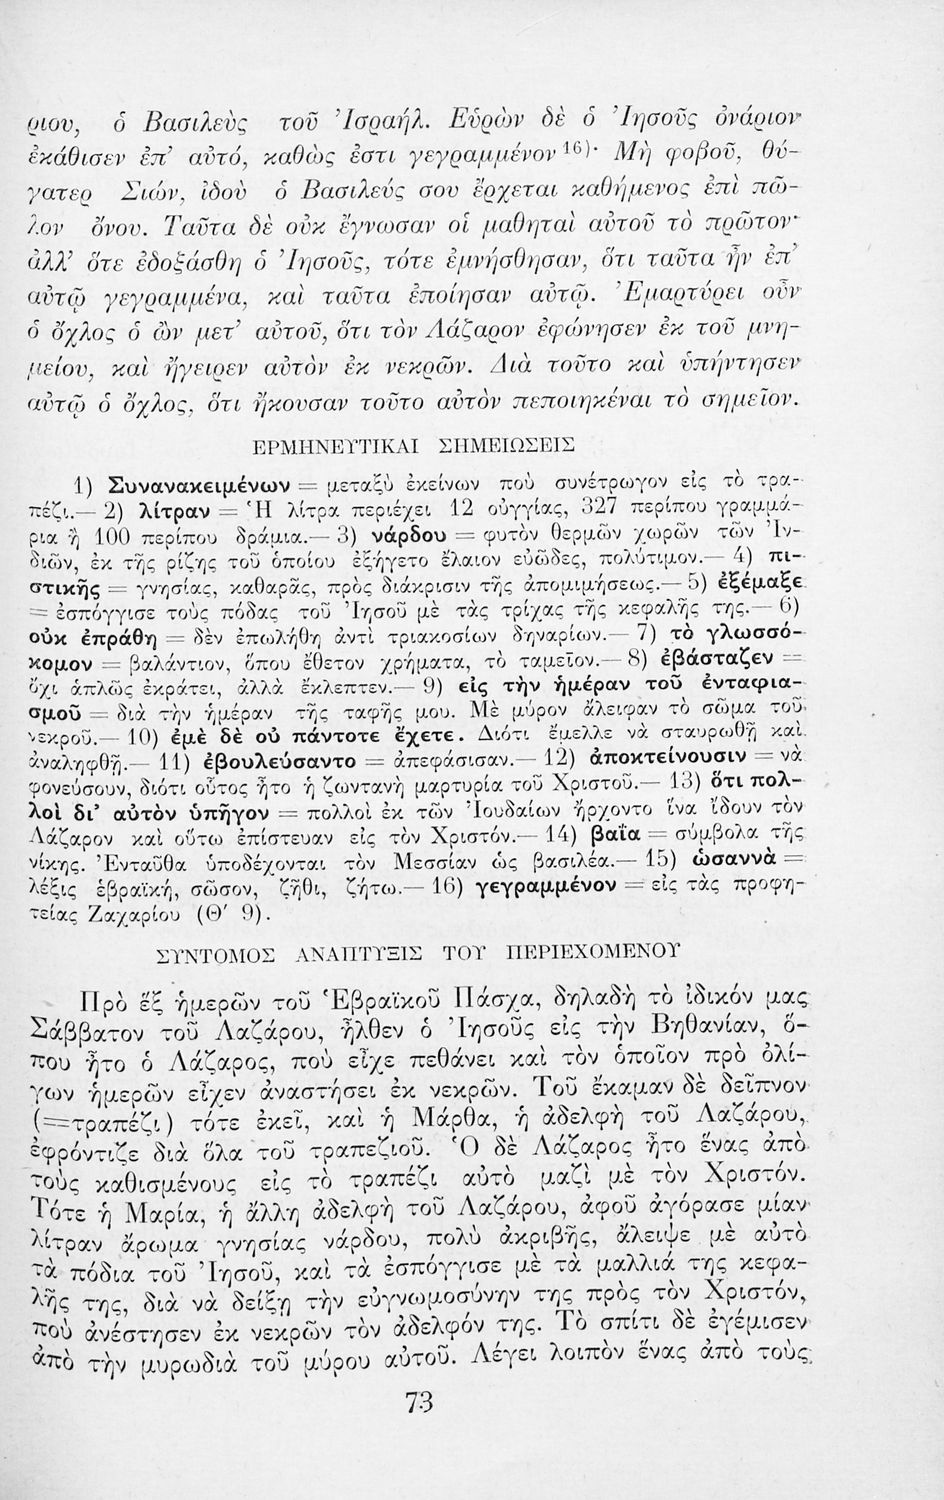 ριου, ὁ Βασιλεὺς τοῦ Ἰσραήλ. Εὑρὼν δὲ ὁ Ἰησοῦς ὀνάριον
ἐκάθισεν ἐπ’ αὐτό, καθὼς ἐστι γεγραμμένον¹⁶⁾· Μὴ φοβοῦ, θύ-
γατερ Σιών, ἰδοὺ ὁ Βασιλεύς σου ἔρχεται καθήμενος ἐπὶ πῶ-
λον ὄνου. Ταῦτα δὲ οὐκ ἔγνωσαν οἱ μαθηταὶ αὐτοῦ τὸ πρῶτον·
ἀλλ’ ὅτε ἐδοξάσθη ὁ Ἰησοῦς, τότε ἐμνήσθησαν, ὅτι ταῦτα ἦν ἐπ’
αὐτῷ γεγραμμένα, καὶ ταῦτα ἐποίησαν αὐτῷ. Ἐμαρτύρει οὖν
ὁ ὄχλος ὁ ὢν μετ’ αὐτοῦ, ὅτι τὸν Λάζαρον ἐφώνησεν ἐκ τοῦ μνη-
μείου, καὶ ἤγειρεν αὐτὸν ἐκ νεκρῶν. Διὰ τοῦτο καὶ ὑπήντησεν
αὐτῷ ὁ ὄχλος, ὅτι ἤκουσαν τοῦτο αὐτὸν πεποιηκέναι τὸ σημεῖον.
ΕΡΜΗΝΕΥΤΙΚΑΙ ΣΗΜΕΙΩΣΕΙΣ
1) Συνανακειμένων = μεταξὺ ἐκείνων ποὺ συνέτρωγον εἰς τὸ τρα-
πέζι.— 2) λίτραν = Ἡ λίτρα περιέχει 12 οὐγγίας, 327 περίπου γραμμά-
ρια ἢ 100 περίπου δράμια.— 3) νάρδου = φυτὸν θερμῶν χωρῶν τῶν Ἰν-
διῶν, ἐκ τῆς ρίζης τοῦ ὁποίου ἐξήγετο ἔλαιον εὐῶδες, πολύτιμον.— 4) πι-
στικῆς = γνησίας, καθαρᾶς, πρὸς διάκρισιν τῆς ἀπομιμήσεως.— 5) ἐξέμαξε
= ἐσπόγγισε τοὺς πόδας τοῦ Ἰησοῦ μὲ τὰς τρίχας τῆς κεφαλῆς της.— 6)
οὐκ ἐπράθη = δὲν ἐπωλήθη ἀντὶ τριακοσίων δηναρίων.— 7) τὸ γλωσσό-
κομον = βαλάντιον, ὅπου ἔθετον χρήματα, τὸ ταμεῖον.— 8) ἐβάσταζεν =
ὄχι ἁπλῶς ἐκράτει, ἀλλὰ ἔκλεπτεν.— 9) εἰς τὴν ἡμέραν τοῦ ἐνταφια-
σμοῦ = διὰ τὴν ἡμέραν τῆς ταφῆς μου. Μὲ μύρον ἄλειφαν τὸ σῶμα τοῦ
νεκροῦ.— 10) ἐμὲ δὲ οὐ πάντοτε ἔχετε. Διότι ἔμελλε νὰ σταυρωθῇ καὶ
ἀναληφθῇ.— 11) ἐβουλεύσαντο = ἀπεφάσισαν.— 12) ἀποκτείνουσιν = νὰ
φονεύσουν, διότι οὗτος ἦτο ἡ ζωντανὴ μαρτυρία τοῦ Χριστοῦ.— 13) ὅτι πολ-
λοὶ δι’ αὐτὸν ὑπῆγον = πολλοὶ ἐκ τῶν Ἰουδαίων ἤρχοντο ἵνα ἴδουν τὸν
Λάζαρον καὶ οὕτω ἐπίστευαν εἰς τὸν Χριστόν.— 14) βαΐα = σύμβολα τῆς
νίκης. Ἐνταῦθα ὑποδέχονται τὸν Μεσσίαν ὡς βασιλέα.— 15) ὡσαννὰ =
λέξις ἑβραϊκή, σῶσον, ζῆθι, ζήτω.— 16) γεγραμμένον = εἰς τὰς προφη-
τείας Ζαχαρίου (Θ′ 9).
ΣΥΝΤΟΜΟΣ ΑΝΑΠΤΥΞΙΣ ΤΟΥ ΠΕΡΙΕΧΟΜΕΝΟΥ
Πρὸ ἓξ ἡμερῶν τοῦ Ἑβραϊκοῦ Πάσχα, δηλαδὴ τὸ ἰδικόν μας
Σάββατον τοῦ Λαζάρου, ἦλθεν ὁ Ἰησοῦς εἰς τὴν Βηθανίαν, ὅ-
που ἦτο ὁ Λάζαρος, ποὺ εἶχε πεθάνει καὶ τὸν ὁποῖον πρὸ ὀλί-
γων ἡμερῶν εἶχεν ἀναστήσει ἐκ νεκρῶν. Τοῦ ἔκαμαν δὲ δεῖπνον
(=τραπέζι) τότε ἐκεῖ, καὶ ἡ Μάρθα, ἡ ἀδελφὴ τοῦ Λαζάρου,
ἐφρόντιζε διὰ ὅλα τοῦ τραπεζιοῦ. Ὁ δὲ Λάζαρος ἦτο ἕνας ἀπὸ
τοὺς καθισμένους εἰς τὸ τραπέζι αὐτὸ μαζὶ μὲ τὸν Χριστόν.
Τότε ἡ Μαρία, ἡ ἄλλη ἀδελφὴ τοῦ Λαζάρου, ἀφοῦ ἀγόρασε μίαν
λίτραν ἄρωμα γνησίας νάρδου, πολὺ ἀκριβῆς, ἄλειψε μὲ αὐτὸ
τὰ πόδια τοῦ Ἰησοῦ, καὶ τὰ ἐσπόγγισε μὲ τὰ μαλλιά της κεφα-
λῆς της, διὰ νὰ δείξῃ τὴν εὐγνωμοσύνην της πρὸς τὸν Χριστόν,
ποὺ ἀνέστησεν ἐκ νεκρῶν τὸν ἀδελφόν της. Τὸ σπίτι δὲ ἐγέμισεν
ἀπὸ τὴν μυρωδιὰ τοῦ μύρου αὐτοῦ. Λέγει λοιπὸν ἕνας ἀπὸ τοὺς
73